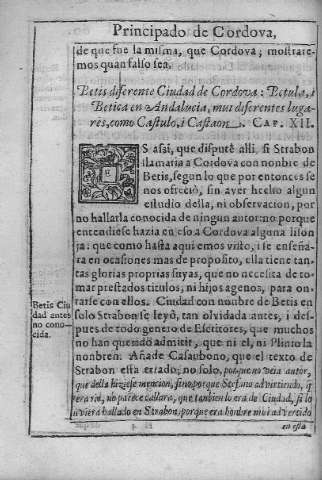 Principado de Cordova,
de que fue la misma, que Cordova; mostrare-
mos quan falso sea.
Betis diferente Ciudad de Cordova: Betula, i
Betica en Andalucia, mui diferentes luga-
res, como Castulo, i Castaon. CAP. XII.
ES assi, que disputè alli, si Strabon
llamaria a Cordova con nonbre de
Betis, segun lo que por entonces se
nos ofreciò, sin aver hecho algun
estudio della, ni observacion, por
no hallarla conocida de ningun autor: no porque
entendiese hazia en eso a Cordova alguna lison
ja: que como hasta aqui emos visto, i se enseña-
ra en ocasiones mas de proposito, ella tiene tan-
tas glorias proprias suyas, que no necesita de to-
mar prestados titulos, ni hijos agenos, para on-
rarse con ellos. Ciudad con nonbre de Betis en
Betis Ciu
dad antes
no cono-
cida.
solo Strabon se leyò, tan olvidada antes, i des-
pues de todo genero de Escritores, que muchos
no han querido admitir, que ni el, ni Plinio la
nonbren. Añade Casaubono, que el texto de
Strabon està errado; no solo, porque no veia autor,
que della hiziese mencion, sino porque Stefano advirtiendo, q
era rio, no parece callara, que tanbien lo era de Ciudad, si lo
uviera hallado en Strabon, porque era honbre mui advertido
en esta